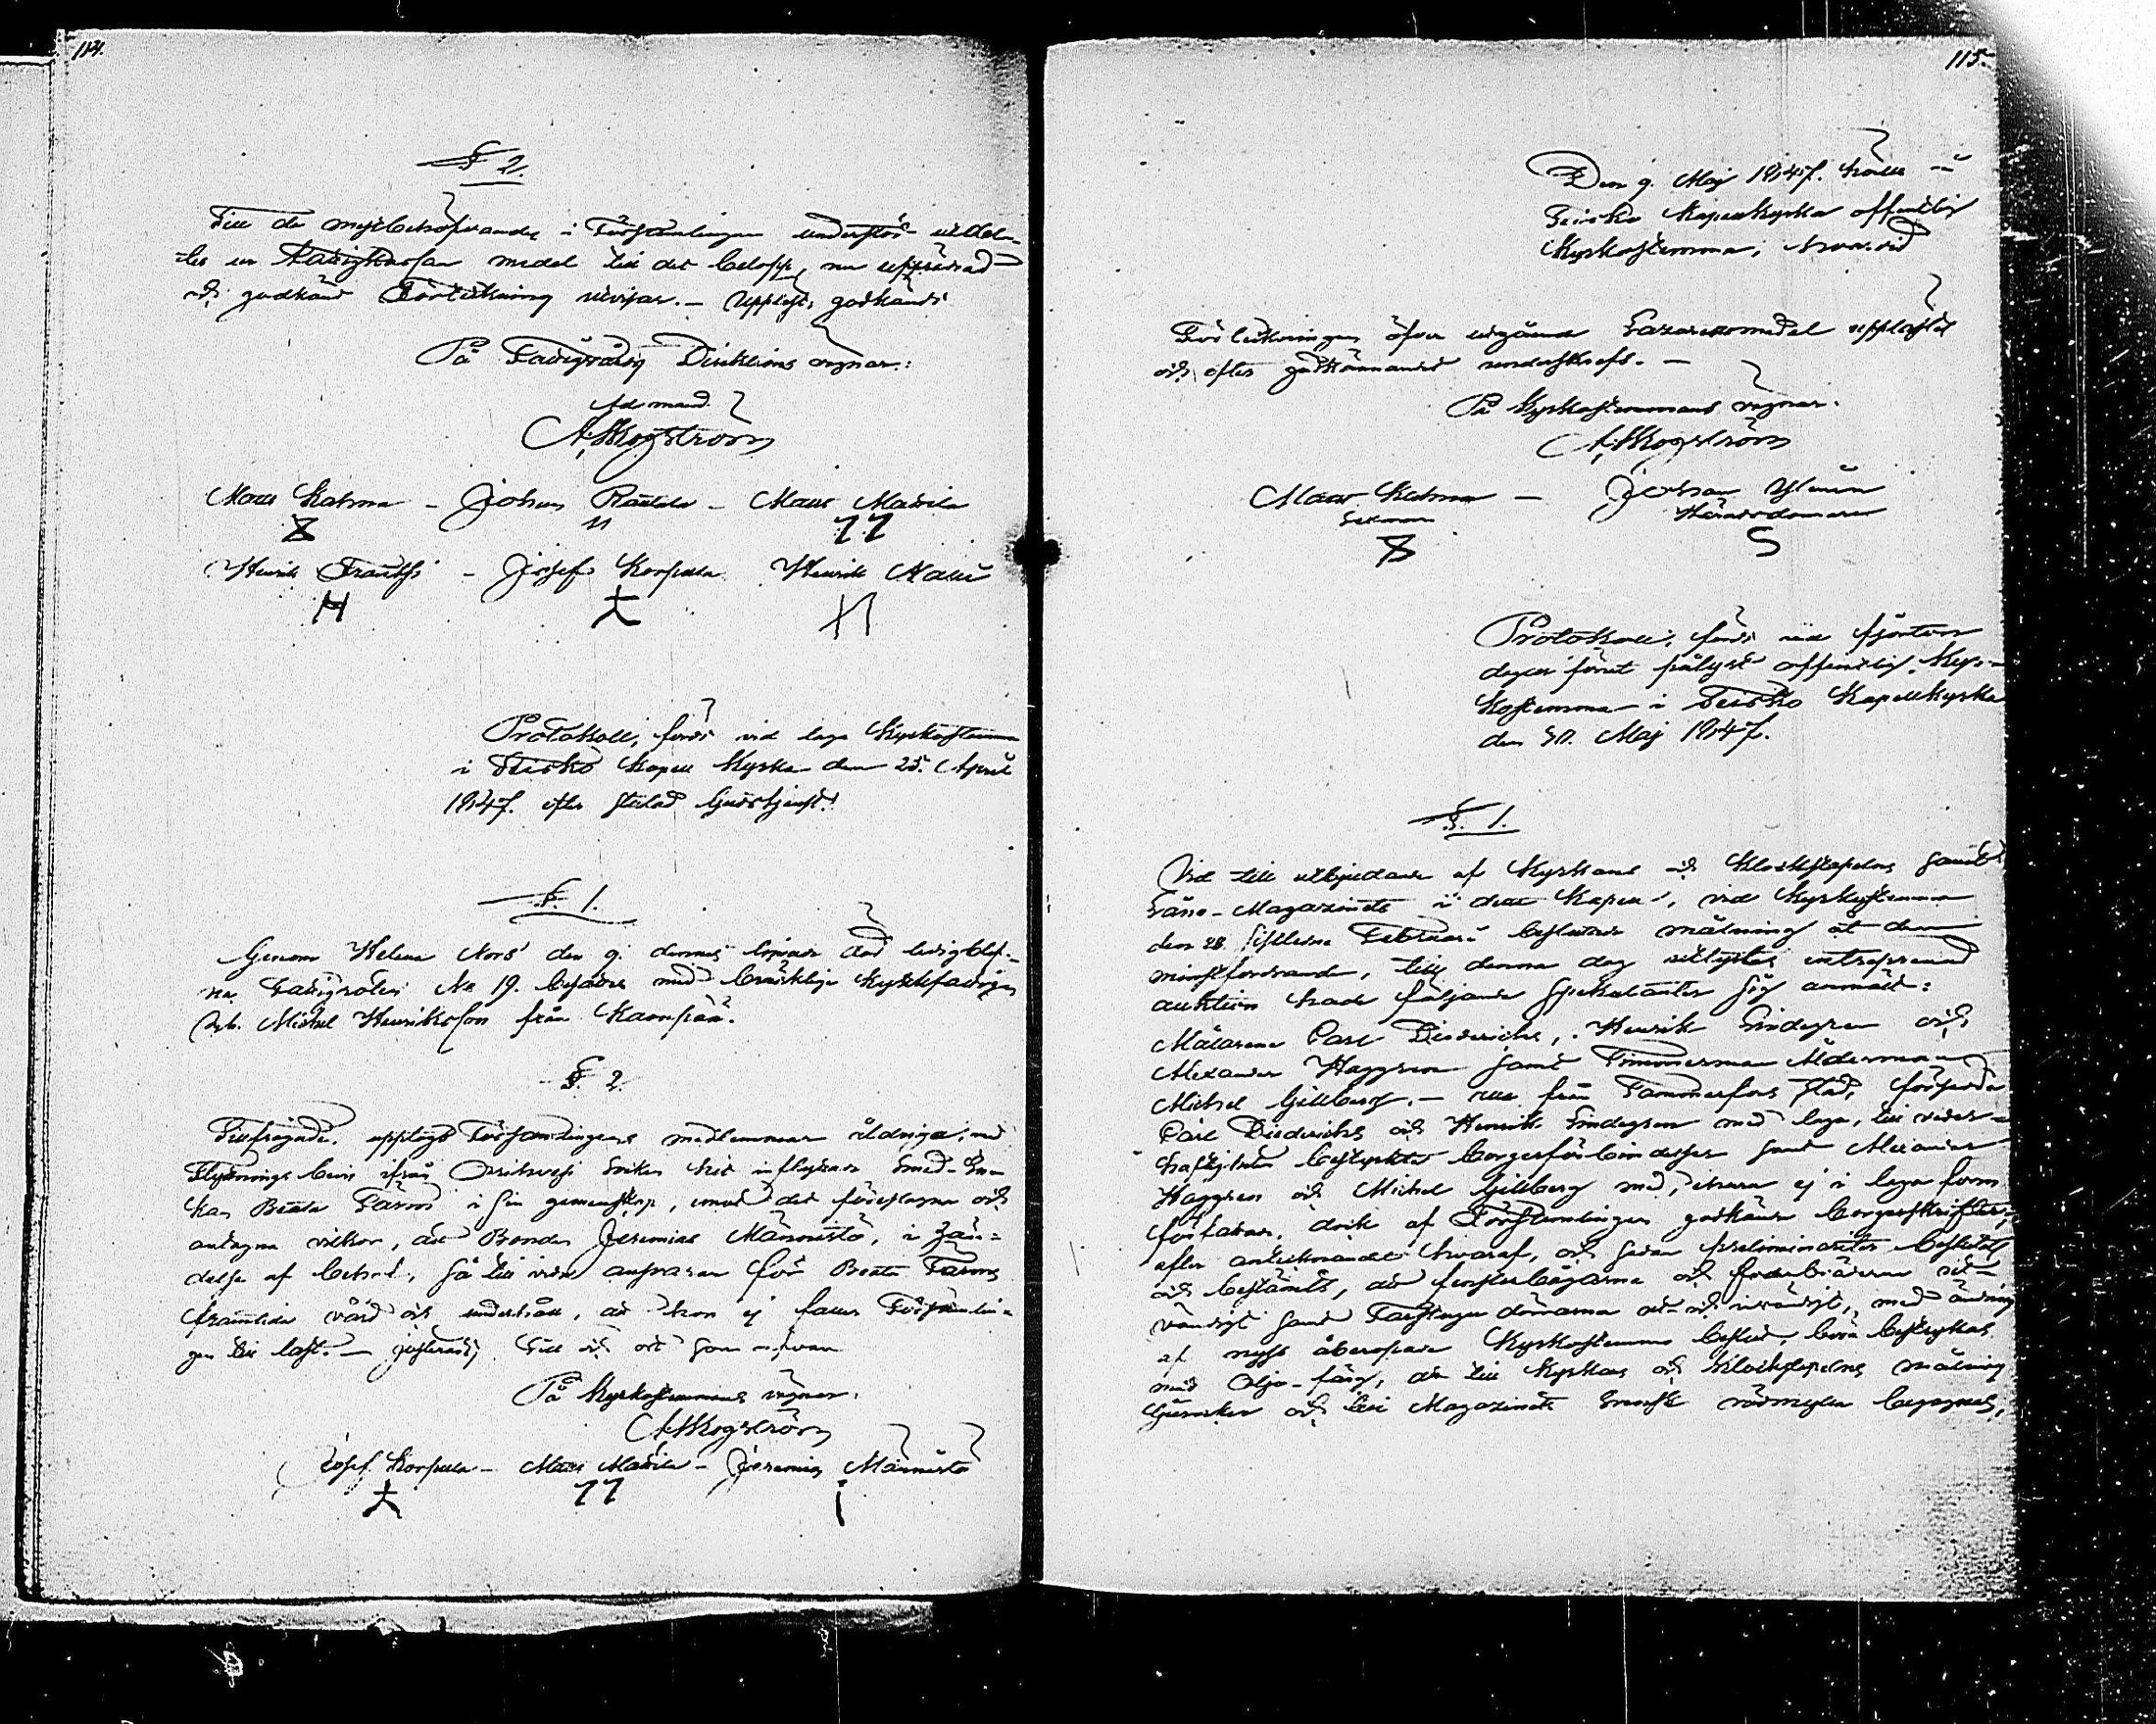 114.
§ 2.
Till de mest behöfvande i Församlingen understöd utdela-
des ur Fattigkassan medel till det belopp, en upprättad
och godkänd Förteckning utvisar. – Uppläst, godkändt
På Fattigvårds Direktions vägnar:
Ad mand.
A. Skogström
Matts Kalma – Johan Rautala – Matts Mattila
Henrik Frantsi – Josef Korpula Henrik
Protokoll, fördt vid laga Kyrkostämma
i Teisko Kapell Kyrka den 25. April
1847. efter slutad Gudstjenst.
§. 1.
Genom Helena den 9. dennes timade död ledigblef-
na Fattigroten No 19. besattes med bräcklige Kyrkfattigen
Michel Henriksson från Kaanpää.
§. 2.
Tillfrågade, upptogo Församlingens medlemmar åldriga, med
Flyttnings bevis ifrån Orihvesi socken hit inflyttade Smed-En-
kan Beata Farm i sin gemenskap, emot det föreslagna och
antagna vilkor, att Bonden Jeremias Männistö, i hän-
delse af behof, så till vida ansvarar för Beata Farms
framtida vård och underhåll, att hon ej faller Församlin-
gen till last. – justerades, Tid och ort som ofvan
På Kyrkostämmans vägnar:
A. Skogström
Josef Korpula – Matts Mattila – Jeremias Männistö
115.
Den 9. Maj 1847. hölls i
Teisko Kapellkyrka offentlig
Kyrkostämma, hvarvid
Förteckningen öfver utgående Lazarettsmedel upplästes
och efter godkännandet underskrefs. –
På Kyrkostämmans vägnar.
A. Skogström
Matts Kalma – Johan
Sexman Häradsdomare
Protokoll, fördt vid fjorton
dagar förut pålyst offentlig Kyr-
kostämma i Teisko Kapellkyrka
den 30. Maj 1847.
§. 1.
Vid till utbjudande af Kyrkans och Klockstapelns samt
Låne-Magazinets i detta Kapell, vid Kyrkostämma
den 28. sistledne Februari beslutade målning åt den
minstfordrande, till denna dag utlyste entreprenad
auktion hade följande spekulanter sig anmält:
Målarene Carl Diedrichs, Henrik Lindegren och
Alexander Haggren samt Timmerman Åldermannen
Michel Gillberg. – alla från Tammerfors stad, försedde
Carl Diedrichs och Henrik Lindegren med laga, till veder-
häftighet bestyrkta borgesförbindelser samt Alexander
Haggren och Michel Gillberg med, ehuru ej i laga form
författade, dock af Församlingen godkände borgesskrifter,
efter antecknandet hvaraf, och sedan preliminariter beslutats
och bestämts, att fensterbågarna och foderbräderna ut-
vändigt samt dörrarna ut- och invändigt, med ändring
af nyss åberopade Kyrkostämmo beslut, böra bestrykas
med Olje-färg, att till Kyrkans och Klockstapelns målning
och till Magazinets Svensk rödmylla begagnas,